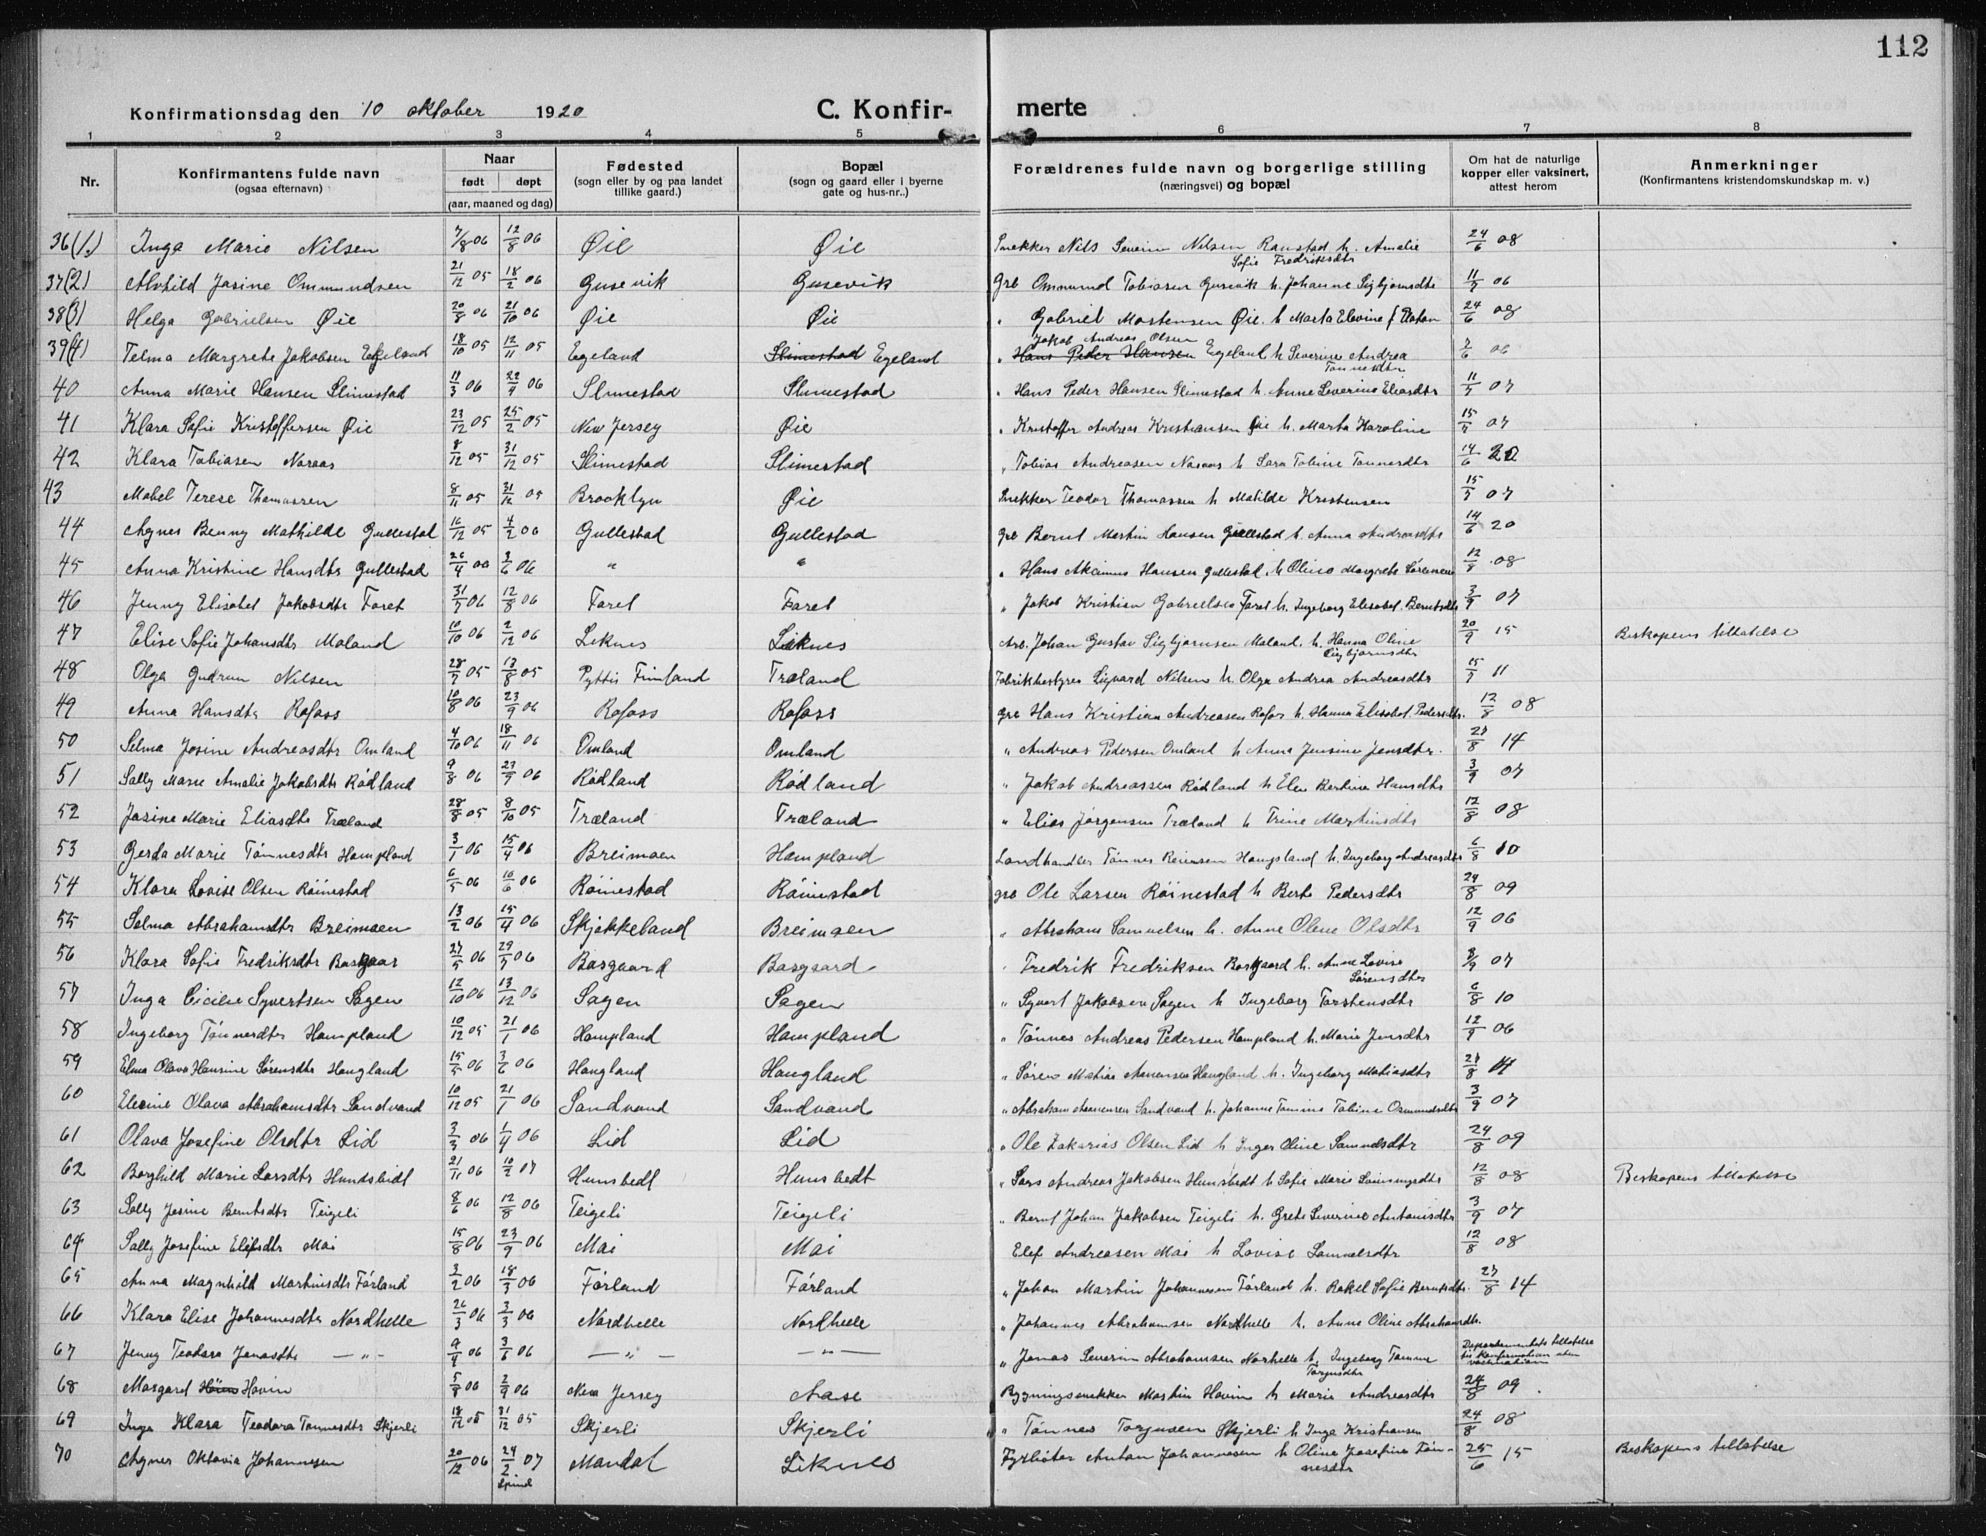 112
Konfirmationsdag den 10 oktober 1920 C. Konfir- merte
1 2 3 4 5 6 7 8
Nr. Konfirmantens fulde navn (ogsaa efternavn) Naar født døpt (aar, maaned og dag) Fødested (sogn eller by og paa landet tillike gaard.) Bopæl (sogn og gaard eller i byerne gate og hus-nr..) Forældrenes fulde navn og borgerlige stilling (næringsvei) og bopæl Om hat de naturlige kopper eller vaksinert, attest herom Anmerkninger (Konfirmantens kristendomskundskap m. v.)
36(1.) Inga Marie Nilsen 7/8 06 12/8 06 Øie Øie Snekker Nils Severin Nilsen Ranstad h. Amalie Sofie Fredriksdtr 24/6 08
37(2) Alvhild Josine Ommundsen 21/12 05 18/2 06 Gusevik Gusevik Grb Ommund Tobiasen Gusevik h. Johanne Sigbjørnsdtr 11/7 06
38(3) Helga Gabrielsen Øie 20/8 06 21/10 06 Øie Øie " Gabriel Mortensen Øie h Marta Elevine 24/6 08
39(4) Telma Margrete Jakobsen Egeland 18/10 05 12/11 05 Egeland Slimestad Egeland " Hans Peder Hansen Jakob Andreas Olsen Egeland h Severine Andrea Tønnesdtr 06
40 Anna Marie Hansen Slimestad 11/3 06 22/4 06 Slimestad Slimestad " Hans Peder Hansen Slimestad h. Anne Severine Eliasdtr 11/7 07
41 Klara Sofie Kristoffersen Øie 23/12 05 25/2 05 New Jersey Øie " Kristoffer Andreas Kristiansen Øie h. Marta Karoline 15/7 07
42 Klara Tobiasen Naraas 8/12 05 31/12 05 Slimestad Slimestad " Tobias Andreasen Naraas h Sara Tobine Tønnesdtr 14/6 20
43 Mabel Terese Thomassen 8/11 05 31/12 05 Brooklyn Øie Snekker Teodor Thomassen h Matilde Kristensen 15/7 07
44 Agnes Benny Mathilde Gullestad 16/12 05 4/2 06 Gullestad Gullestad grb Bernt Martin Hansen Gullestad h. Anna Andreasdtr 14/6 20
45 Anna Kristine Hansdtr Gullestad 26/4 06 3/6 06 " " " Hans Hansen Gullestad h Oline Margrete Sørensen 12/8 08
46 Jenny Elisabet Jakobsdtr Faret 31/7 06 12/8 06 Faret Faret " Jakob Kristian Gabrielsen Faret h. Ingeborg Elisabet Berntsdtr 3/9 07
47 Elise Sofie Johansdtr Moland 10/10 06 2/12 06 Liknes Liknes Arb. Johan Gustav Sigbjørnsen Moland h. Hanna Oline Sigbjørnsdtr 20/9 15 Biskopens tillatelse
48 Olga Gudrun Nilsen 28/7 05 13/8 05 Pyttis Finnland Træland Fabrikbestyrer Sigvard Nilsen h. Olga Andrea Andreasdtr 15/7 11
49 Anna Hansdtr Rafoss 10/8 06 23/9 06 Rafoss Rafoss grb Hans Kristian Andreasen Rafos h. Hanna Elisabet Pedersdtr. 12/8 08
50 Selma Josine Andreasdtr Omland 4/10 06 18/11 06 Omland Omland " Andreas Pedersen Omland h Anne Jensine Jensdtr. 27/8 14
51 Sally Marie Amalie Jakobsdtr Rødland 9/8 06 23/9 06 Rødland Rødland " Jakob Andreassen Rødland h Elen Bertine Hansdtr 3/9 07
52 Josine Marie Eliasdtr Træland 28/8 05 8/10 05 Træland Træland " Elias Jørgensen Træland h Trine Martinsdtr 12/8 08
53 Gerda Marie Tønnesdtr Hampland 3/1 06 15/4 06 Breimoen Hampland Landhandler Tønnes Reiersen h. Ingeborg Andreasdtr 6/8 10
54 Klara Lovise Olsen Røinestad 6/5 06 10/6 06 Røinestad Røinestad grb Ole Larsen Røinestad h Berte Pedersdtr 24/8 09
55 Selma Abrahamsdtr Breimoen 13/2 06 15/4 06 Skjekkeland Breimoen " Abraham Samuelsen h. Anne Oline Olsdtr 12/9 06
56 Klara Sofie Fredriksdtr 27/5 06 29/7 06 Basgaard Basgaard " Fredrik Fredriksen h. Anne Lovise Sørensdtr 07
57 Inga Cicilie Syvertsen Sagen 12/10 06 13/12 06 Sagen Sagen " Syvert Jakobsen Sagen h Ingeborg Torstensdtr 6/8 10
58 Ingeborg Tønnesdtr Hampland 10/12 05 21/1 06 Hampland Hampland " Tønnes Andreas Pedersen Hampland h. Marie Jensdtr 12/9 06
59 Elma Olava Hansine Sørensdtr Haugland 15/5 06 3/6 06 Haugland Haugland " Søren Matias Haugland h. Ingeborg Matiasdtr 27/8 14
60 Elevine Olava Abrahamsdtr Sandvand 10/12 05 21/1 06 Sandvand Sandvand " Abraham Sandvand h. Johanne Tobine Osmundsdtr 3/9 07
61 Olava Josefine Olsdtr Lid 3/3 06 1/4 06 Lid Lid " Ole Zakarias Olsen Lid h Inger Oline Samuelsdtr 24/8 09
62 Borghild Marie Larsdtr Hundsbedt 21/11 06 10/2 07 Hunsbedt Hunsbedt " Lars Andreas Jakobsen Hunsbedt h Sofie Marie 12/8 08 Biskopens tillatelse
63 Sally Josine Berntsdtr Teigeli 8/6 06 12/8 06 Teigeli Teigeli " Bernt Johan Jakobsen Teigeli h. Grete Severine Antonisdtr 3/9 07
64 Sally Josefine Elefsdtr Mai 15/8 06 23/9 06 Mai Mai Elef Andreasen Mai h Lovise Samuelsdtr 12/8 08
65 Anna Magnhild Martinsdtr Førland 2/2 06 18/3 06 Førland Førland " Johan Martin Johannesen Førland h. Rakel Sofie Berntsdtr. 27/8 14
66 Klara Elise Johannesdtr Nordhelle 26/3 06 3/3 06 Nordhelle Nordhelle " Johannes Abrahamsen Nordhelle h. Anne Oline Abrahamsdtr.
67 Jenny Teodora Jonasdtr — " — 9/4 06 3/6 06 — " — — " — " Jonas Severin Abrahamsen Norhelle h. Ingeborg Tomine Torgersdtr Departementets tillatelse til Konfirmation uten vaccination
68 Margaret Hovin 5/8 06 2/9 06 New Jersey Aase Bygningssnekker Martin Hovin h Marie Andreasdtr 24/8 09
69 Inga Klara Teodora Tønnesdtr Skjerli 18/12 05 31/12 05 Skjerli Skjerli " Tønnes Torgersen Skjerli h Inga Kristiansen 24/8 08
70 Agnes Oktavia Johannesen 20/12 06 24/2 07 Spind Mandal Liknes Fyrbøter Anton Johannesen h Oline Josefine Tønnesdtr 25/6 15 Biskopens tillatelse